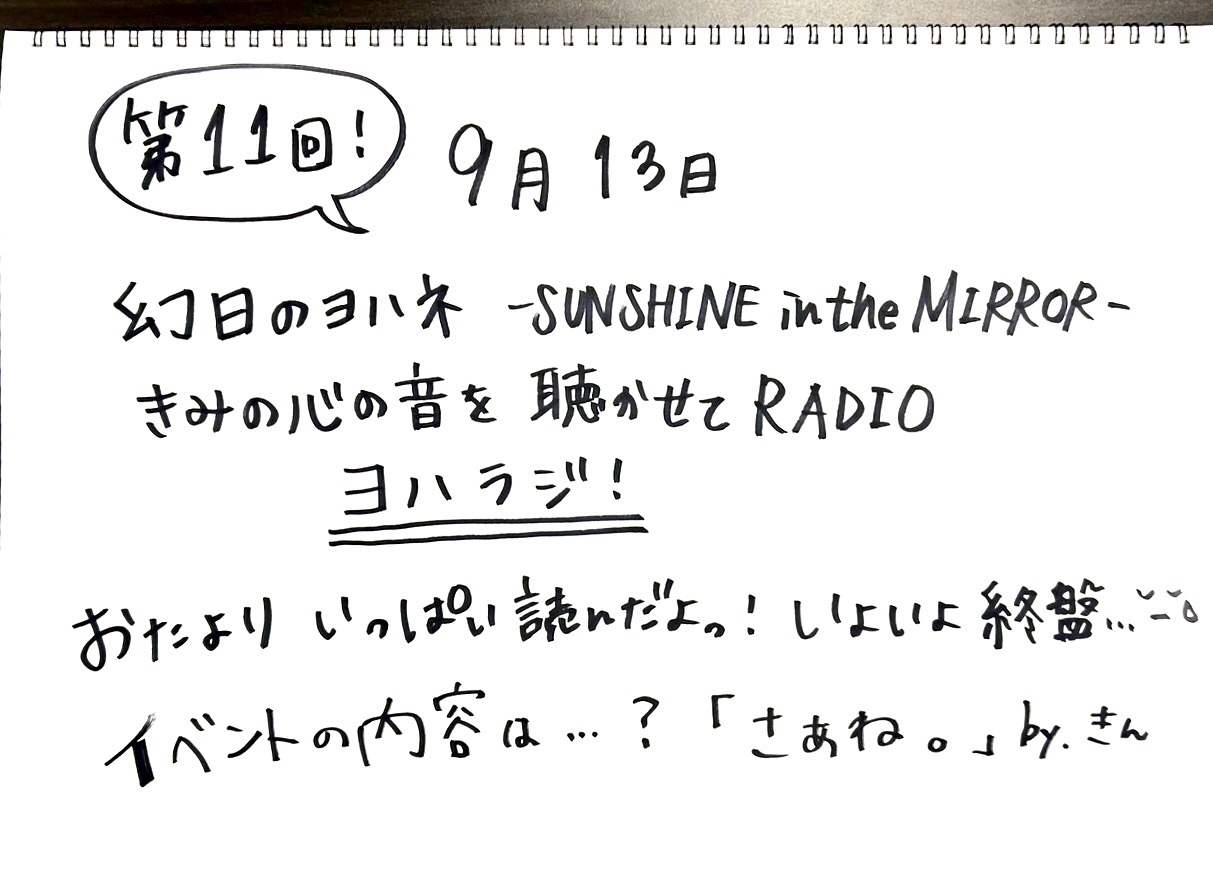 第11回! 9月13日
幻日のヨハネ -SUNSHINE in the MIRROR-
きみの心の音を聴かせてRADIO
ヨハラジ!
おたより いっぱい読んだよっ! いよいよ終盤...
イベントの内容は...?「さあね。」by.きん